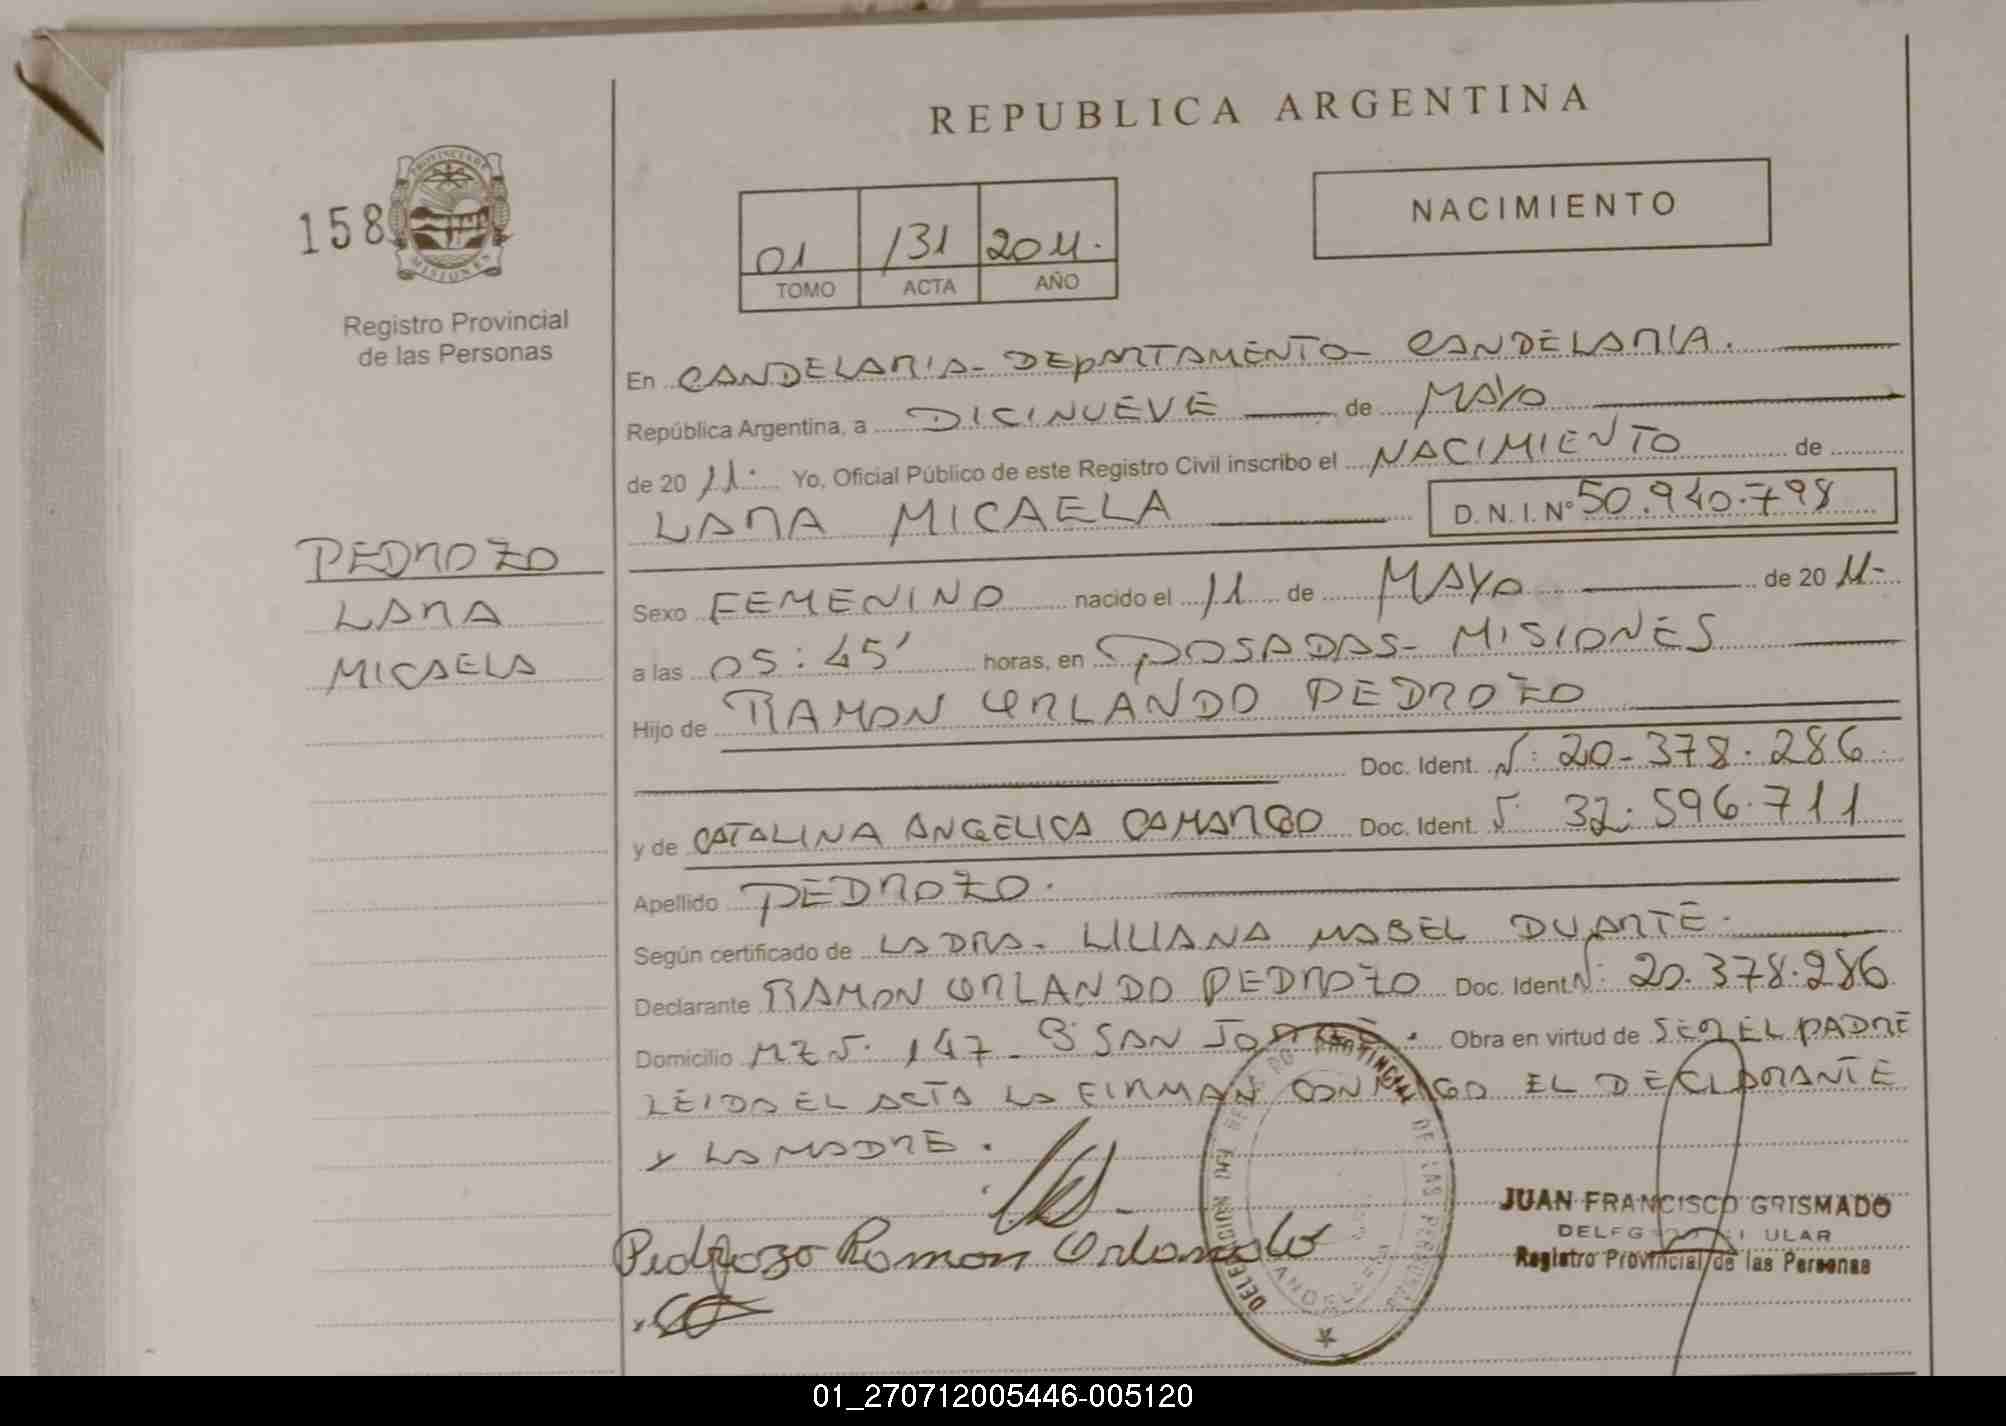 REPUBLICA ARGENTINA
NACIMIENTO
158
PROVINCIA DE MISIONES
Registro Provincial
de las Personas
01 131 2011.
TOMO ACTA AÑO
En CANDELARIA- DEPARTAMENTO CANDELARIA.
República Argentina, a DICINUEVE de MAYO
de 20 11. Yo, Oficial Público de este Registro Civil inscribo el NACIMIENTO de
LARA MICAELA D. N. I. Nº 50.940.798
PEDROZO
LARA
MICAELA
Sexo FEMENINO nacido el 11 de MAYO de 20 11-
a las 05:45' horas, en POSADAS- MISIONES
Hijo de RAMON ORLANDO PEDROZO
Doc. Ident. Nº 20-378.286
y de CATALINA ANGELICA CAMARGO Doc. Ident. Nº 32.596.711
Apellido PEDROZO.
Según certificado de LA DRA. LILIANA MABEL DUARTE.
Declarante RAMON ORLANDO PEDROZO Doc. Ident Nº: 20.378.286
Domicilio MZ Nº 147- Bº SAN JORGE. Obra en virtud de SER EL PADRE
LEIDA EL ACTA LA FIRMAN CONMIGO EL DECLARANTE
Y LA MADRE.
Pedrozo Ramon Orlando
JUAN FRANCISCO GRISMADO
Registro Provincial de las Personas
01_270712005446-005120